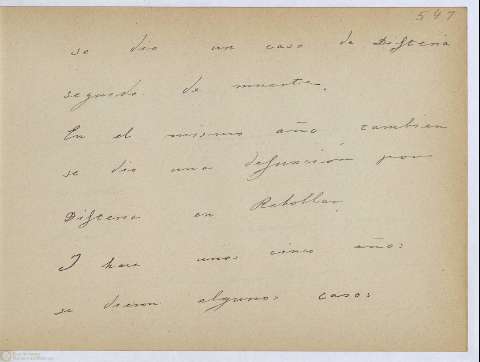 547
se dio un caso de Difteria
seguido de muerte.
En el mismo año tambien
se dio una defunción por
Difteria en Rebollar.
I hace unos cinco años
se dieron algunos casos